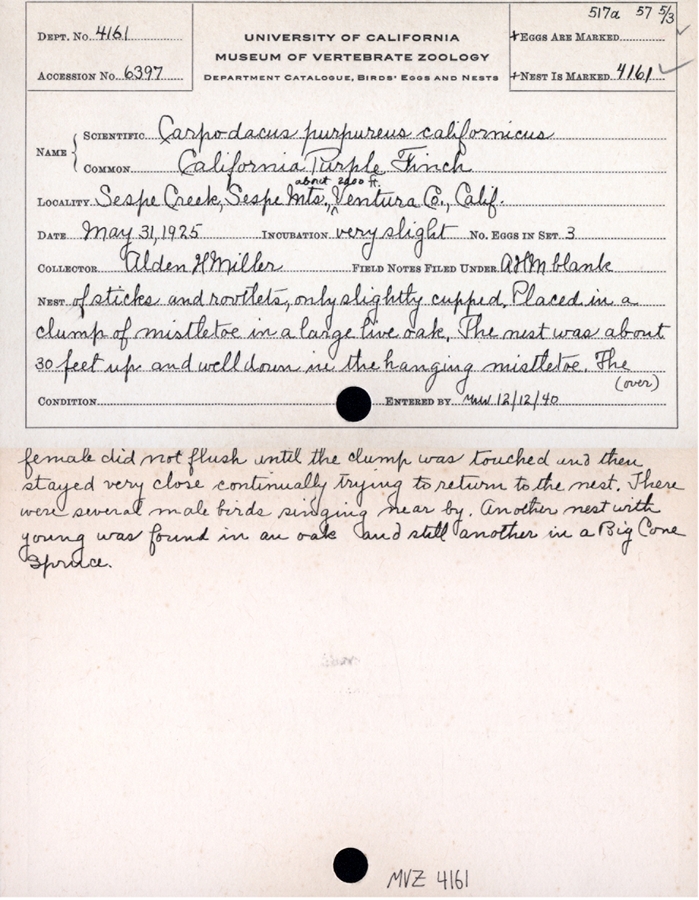 517a 57 5/3
DEPT. NO. 4161
UNIVERSITY OF CALIFORNIA
MUSEUM OF VERTEBRATE ZOOLOGY
DEPARTMENT CATALOGUE, BIRDS' EGGS AND NESTS
+EGGS ARE MARKED
ACCESSION NO. 6397
+NEST IS MARKED 4161
NAME { SCIENTIFIC Carpodacus purpureus californicus
COMMON California Purple Finch
about 2900 ft.
LOCALITY Sespe Creek, Sespe Mts., Ventura Co., Calif.
DATE May 31, 1925 INCUBATION very slight NO. EGGS IN SET 3
COLLECTOR Alden H Miller FIELD NOTES FILED UNDER AHM blank
NEST of sticks and rootlets, only slightly cupped. Placed in a
clump of mistletoe in a large live oak. The nest was about
30 feet up and well down in the hanging mistletoe. The
(over)
CONDITION ENTERED BY 12/12/40
female did not flush until the clump was touched and then
stayed very close continually trying to return to the nest. There
were several male birds singing near by. Another nest with
young was found in an oak and still another in a Big Cone
Spruce.
MVZ 4161